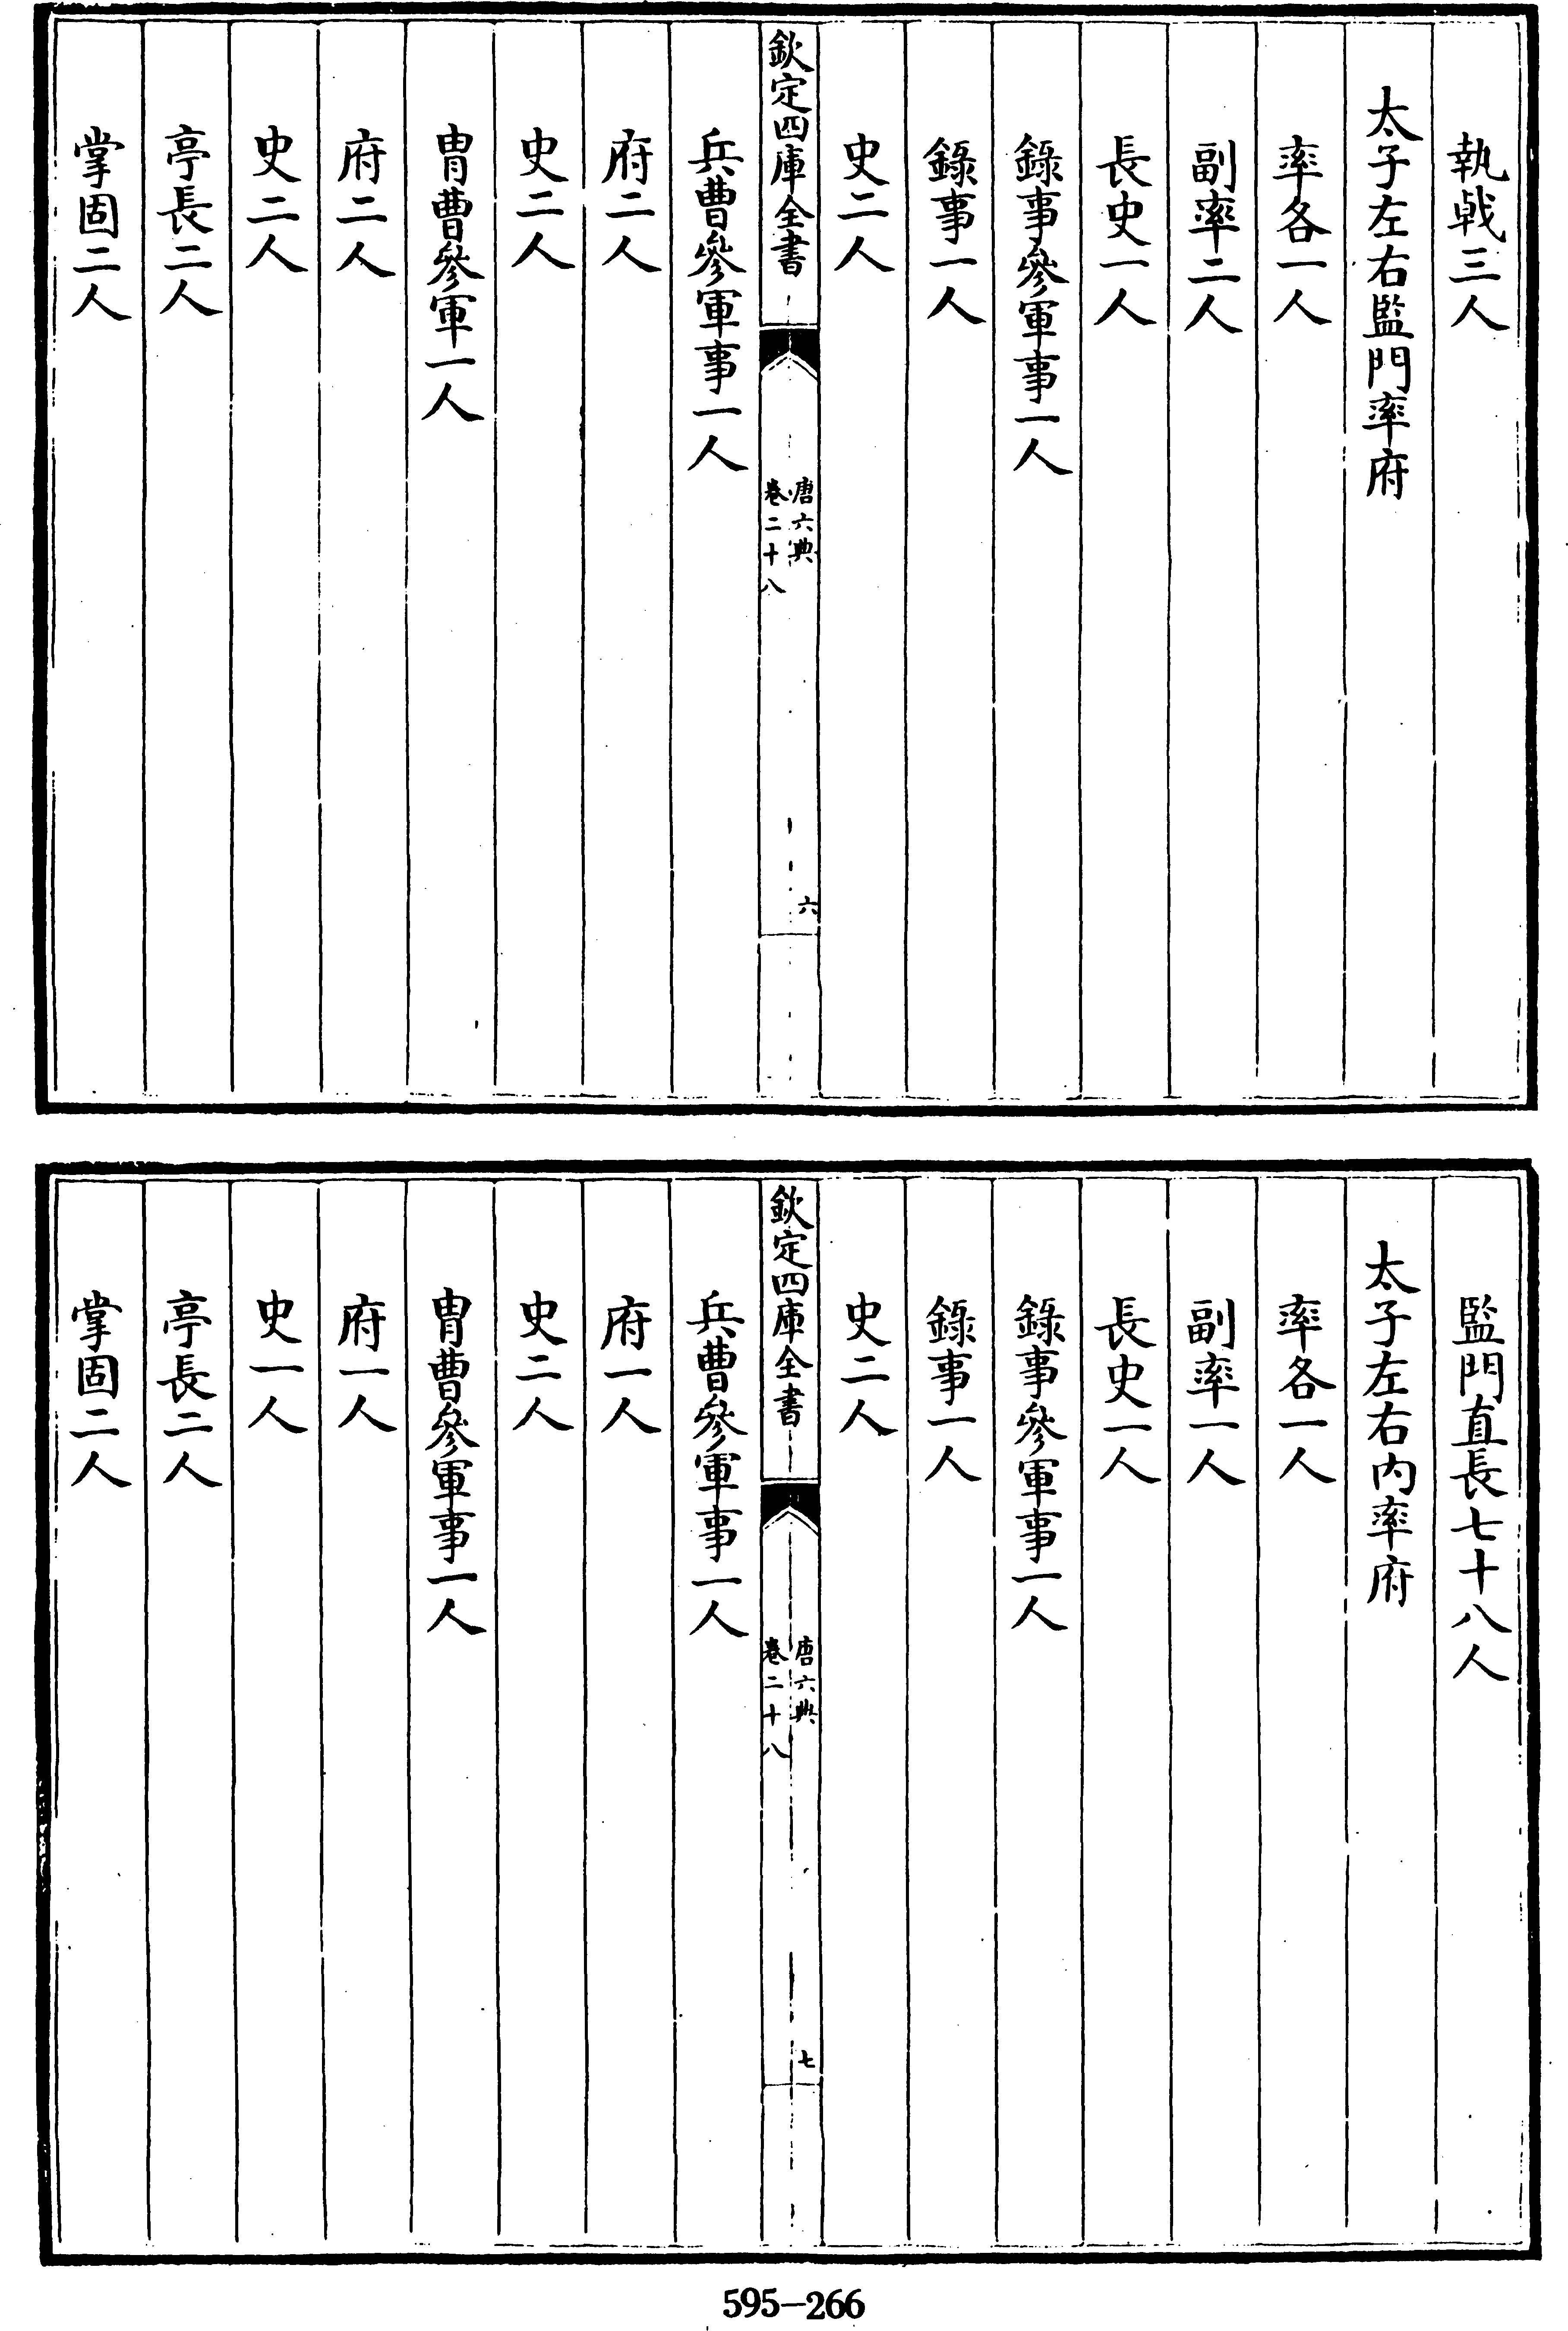 執戟三人
太子左右監門率府
率各一人
副率二人
長史一人
錄事參軍事一人
錄事一人
史二人
欽定四庫全書
唐六典
卷二十八
六
兵曹參軍事一人
府二人
史二人
胄曹參軍一人
府二人
史二人
亭長二人
掌固二人
監門直長七十八人
太子左右內率府
率各一人
副率一人
長史一人
錄事參軍事一人
錄事一人
史二人
欽定四庫全書
唐六典
卷二十八
七
兵曹參軍事一人
府一人
史二人
胄曹參軍事一人
府一人
史一人
亭長二人
掌固二人
595-266